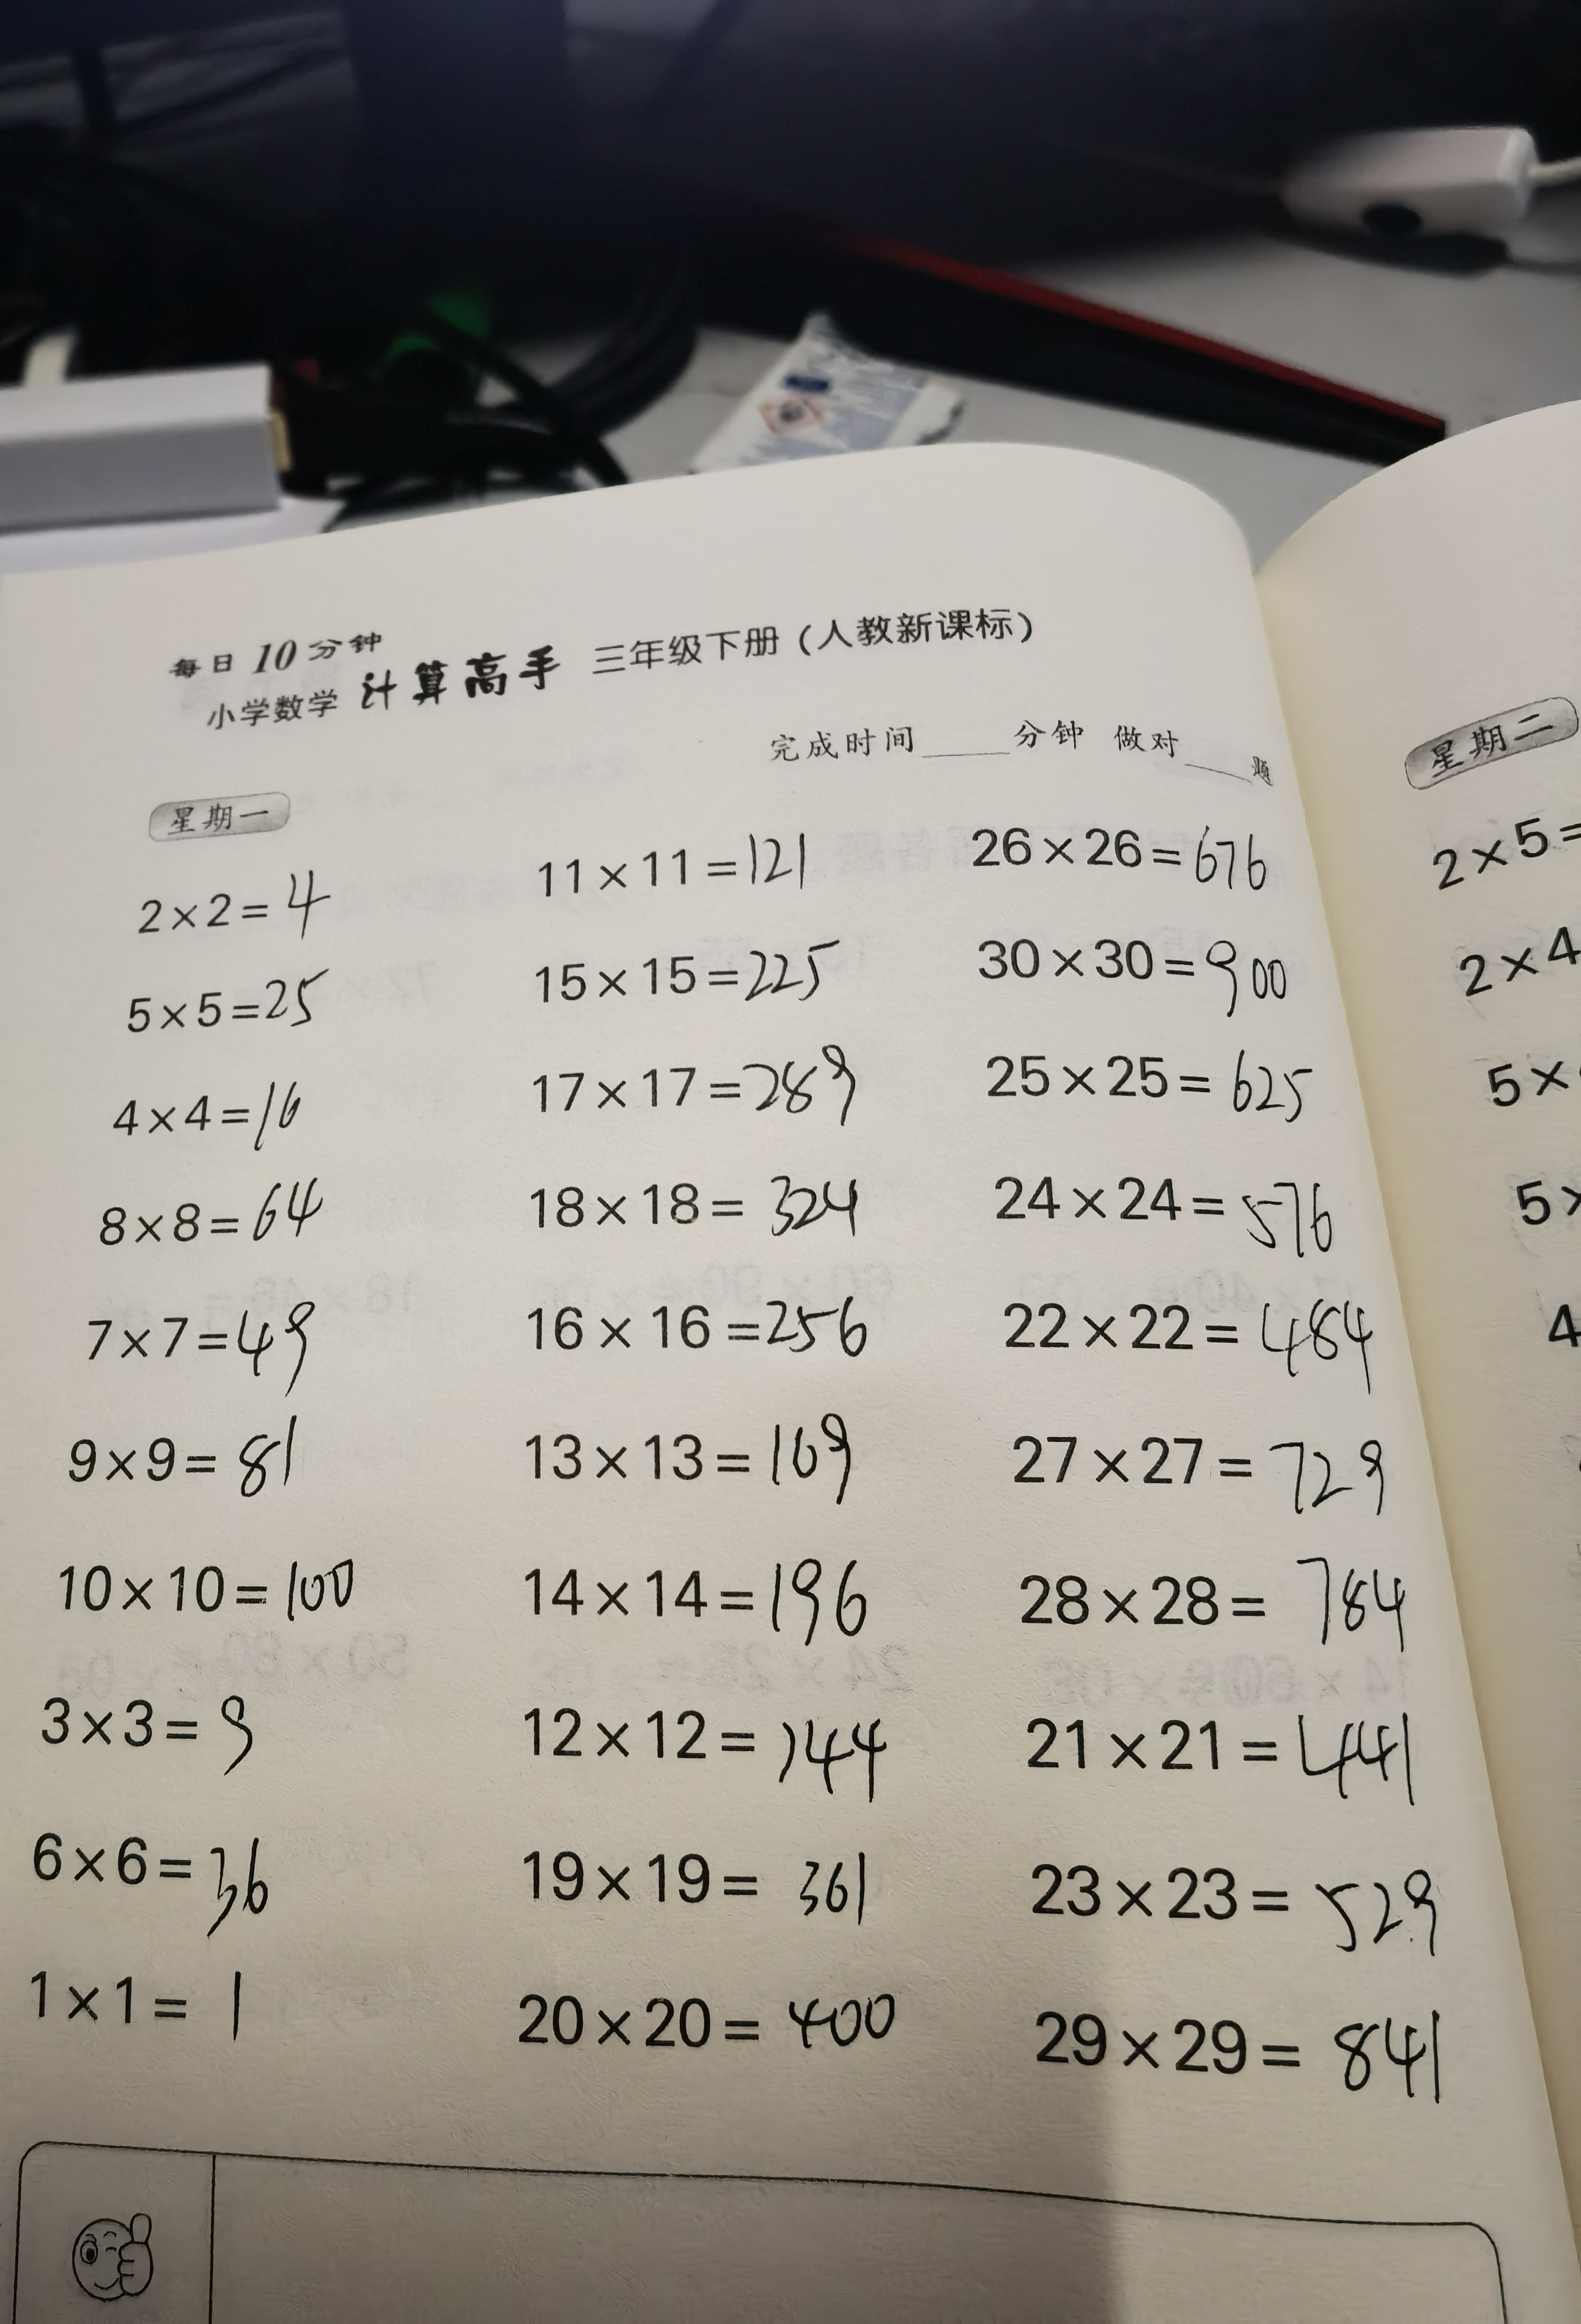 每日10分钟
小学数学 计算高手 三年级下册（人教新课标）
完成时间_____分钟 做对____题
星期一
2×2=4
5×5=25
4×4=16
8×8=64
7×7=49
9×9=81
10×10=100
3×3=9
6×6=36
1×1=1
11×11=121
15×15=225
17×17=289
18×18=324
16×16=256
13×13=169
14×14=196
12×12=144
19×19=361
20×20=400
26×26=676
30×30=900
25×25=625
24×24=576
22×22=484
27×27=729
28×28=784
21×21=441
23×23=529
29×29=841
星期二
2×5=
2×4
5×
5×
4